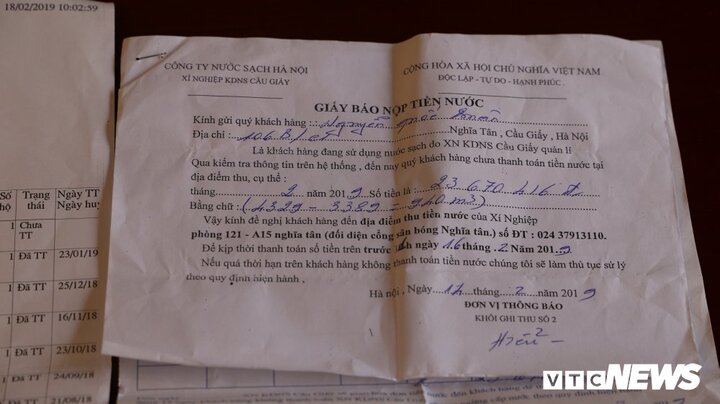 18/02/2019 10:02:59
CÔNG TY NƯỚC SẠCH HÀ NỘI
XÍ NGHIỆP KDNS CẦU GIẤY
CỘNG HÒA XÃ HỘI CHỦ NGHĨA VIỆT NAM
ĐỘC LẬP - TỰ DO - HẠNH PHÚC
GIẤY BÁO NỘP TIỀN NƯỚC
Kính gửi quý khách hàng : Nguyễn Quốc
Địa chỉ : 106 B1 Nghĩa Tân , Cầu Giấy , Hà Nội
Là khách hàng đang sử dụng nước sạch do XN KDNS Cầu Giấy quản lí
Qua kiểm tra thông tin trên hệ thống , đến nay quý khách hàng chưa thanh toán tiền nước tại
địa điểm thu, cụ thể :
tháng 2 năm 2019 Số tiền là : 23 670 416 đ
Bằng chữ: ( 4329 - 3389 = 940 m3)
Vậy kính đề nghị khách hàng đến địa điểm thu tiền nước của Xí Nghiệp
phòng 121 - A15 nghĩa tân (đối diện cổng sân bóng Nghĩa tân.) số ĐT : 024 37913110.
Để kịp thời thanh toán số tiền trên trước ngày 16 tháng 2 năm 2019
Nếu quá thời hạn trên khách hàng không thanh toán tiền nước chúng tôi sẽ làm thủ tục sử lý
theo quy định hiện hành .
Hà nội , Ngày 12 / 2 năm 2019
ĐƠN VỊ THÔNG BÁO
KHỐI GHI THU SỐ 2
Số hộ Trạng thái Ngày TT
Ngày hu
1 Chưa TT
1 Đã TT 23/01/19
1 Đã TT 25/12/18
1 Đã TT 16/11/18
1 Đã TT 23/10/18
1 Đã TT 24/09/18
1 Đã TT 21/08/18
VTC NEWS